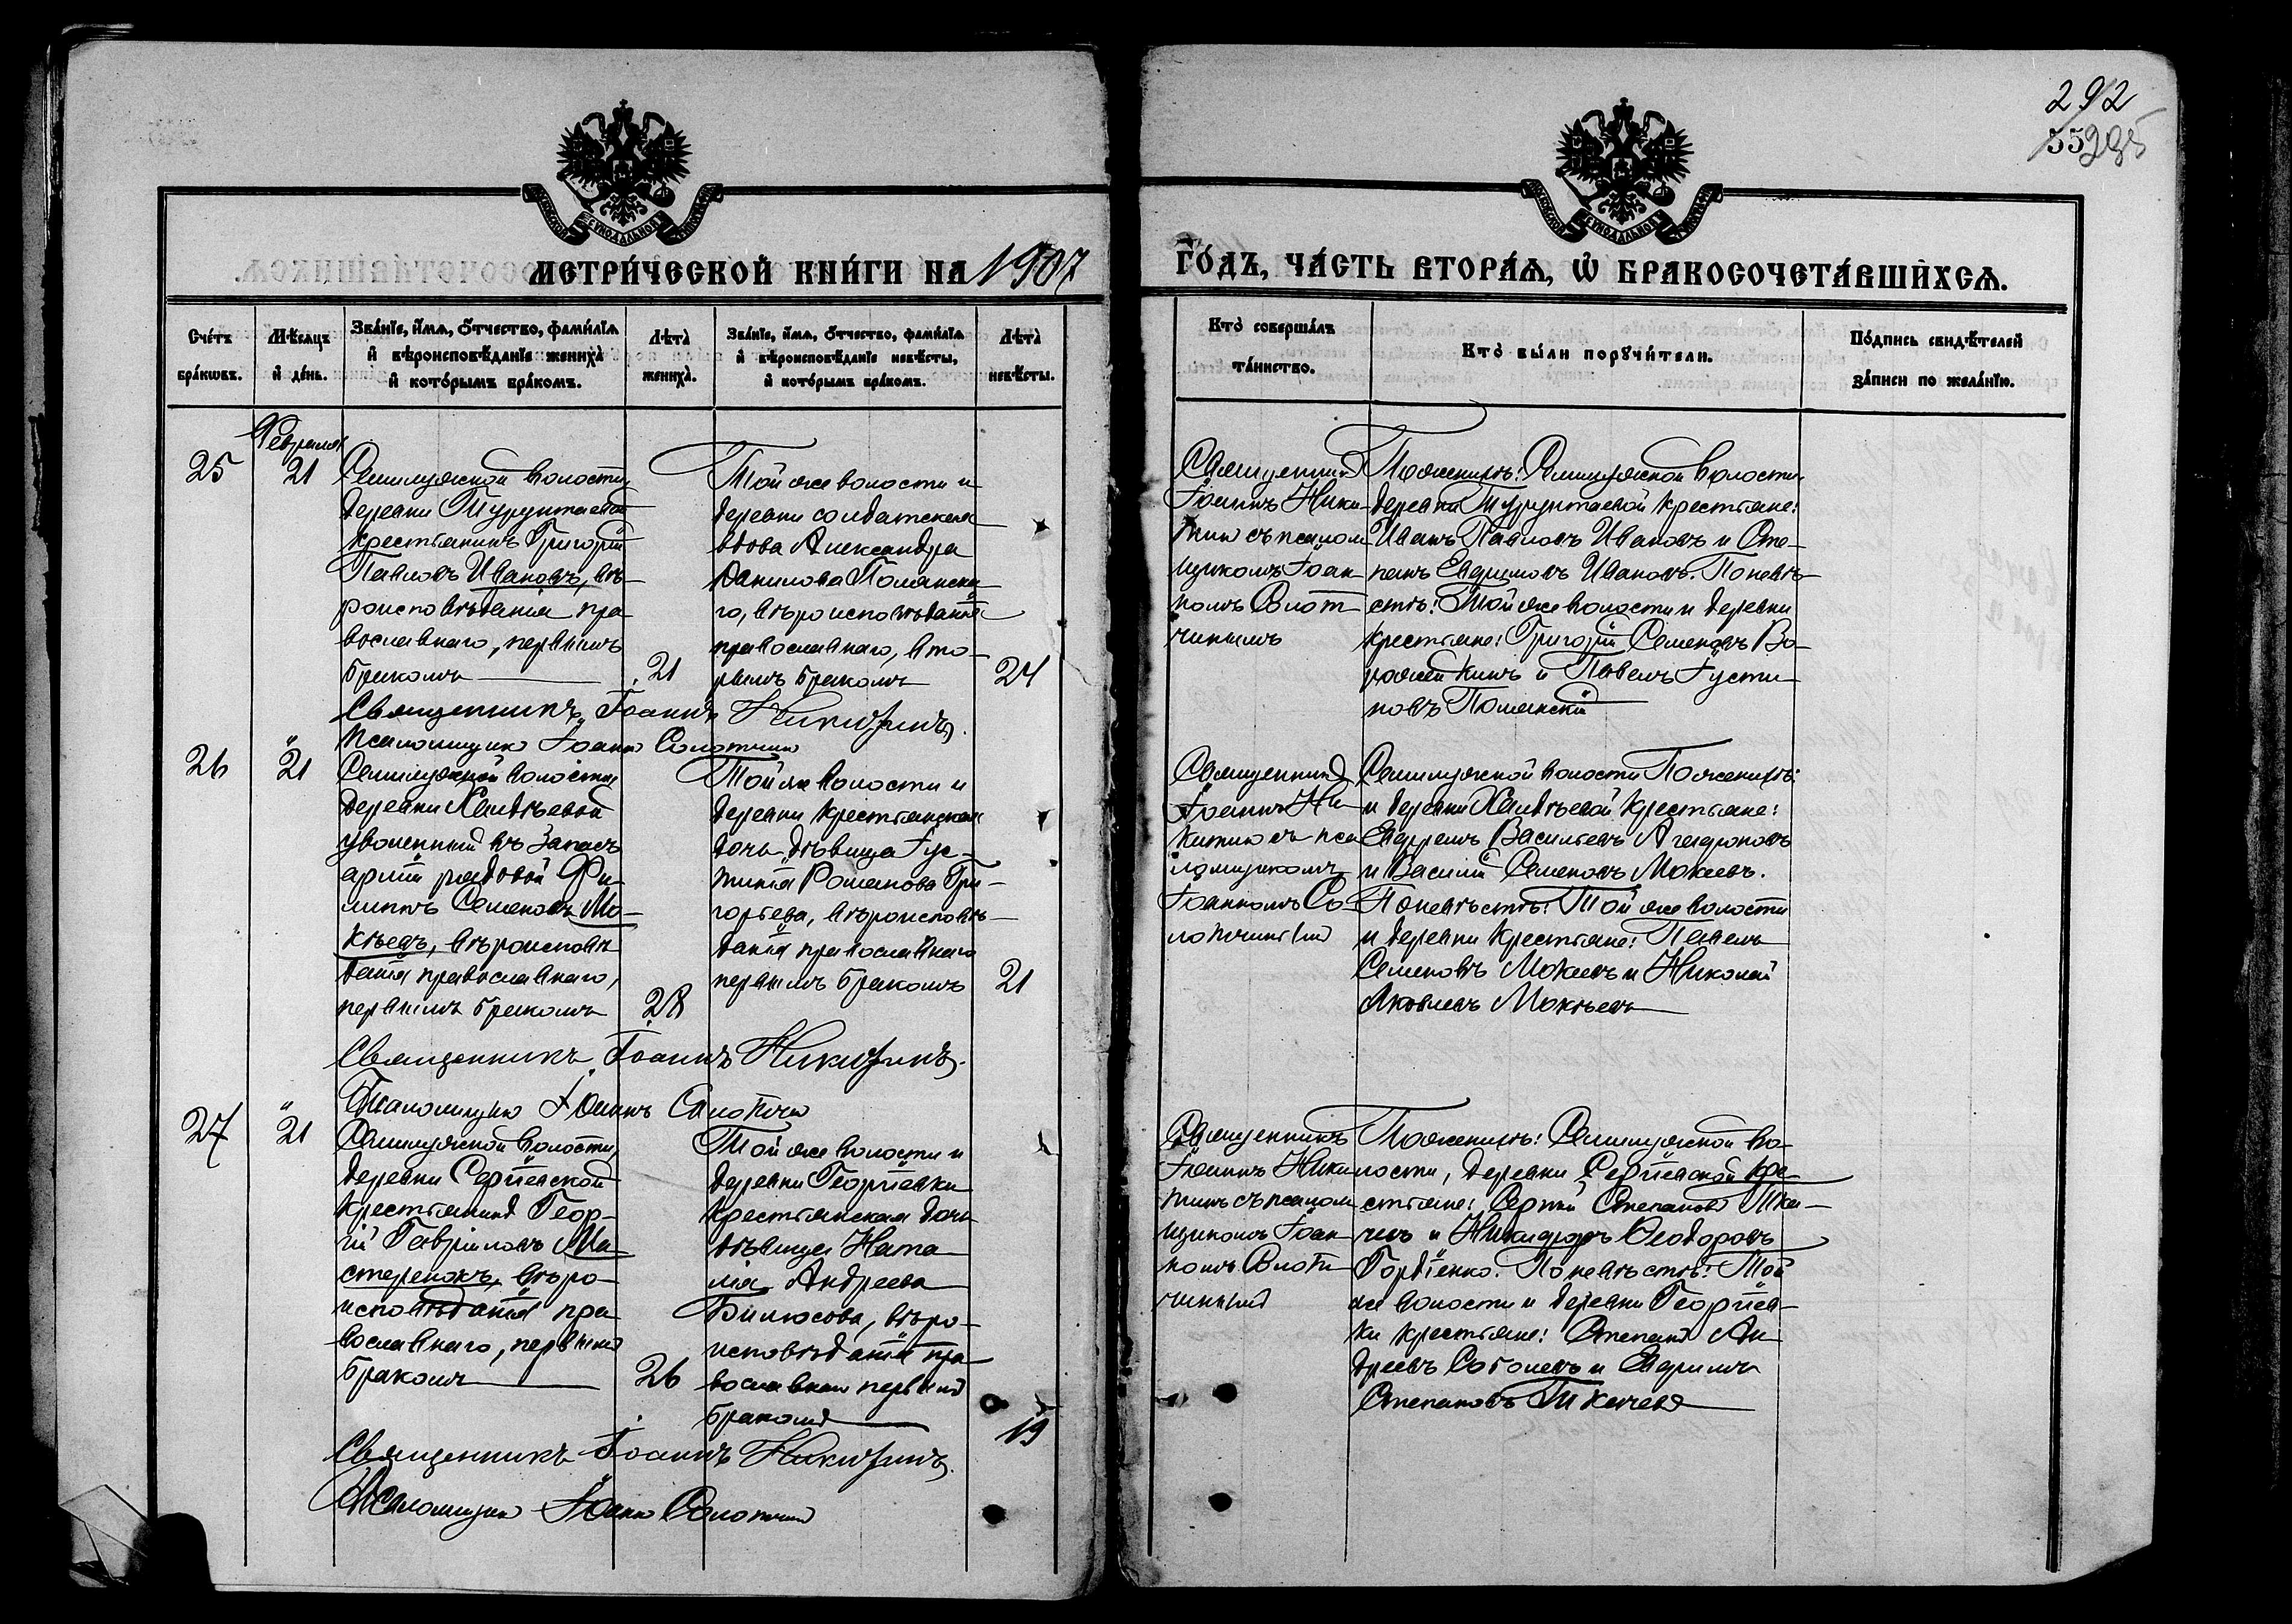 292
55 295
МЕТРИЧЕСКОЙ КНИГИ НА 1907
ГОДЪ, ЧАСТЬ ВТОРАЯ, Ѡ БРАКОСОЧЕТАВШИХСЯ.
Счетъ браковъ.
Мѣсяцъ и день.
Званіе, имя, отчество, фамилія
и вѣроисповѣданіе жениха
и которымъ бракомъ.
Лѣта
жениха.
Званіе, имя, отчество, фамилія
и вѣроисповѣданіе невѣсты,
и которымъ бракомъ.
Лѣта
невѣсты.
Кто совершалъ
таинство.
Кто были поручители.
Подпись свидѣтелей
записи по желанію.
Февраля
25
21
Семилужской волости,
деревни Турунтаевой
крестьянинъ Григорій
Павловъ Ивановъ, вѣ-
роисповѣданія пра
вославнаго, первымъ
бракомъ
21
Той же волости и
деревни солдатская
вдова Александра
Данилова Полянска
го, вѣроисповѣданія
православнаго, вто-
рымъ бракомъ
24
Священникъ
Іоаннъ Ники-
тинъ съ псалом
щикомъ Іоан
номъ Солот
чинымъ
По женихѣ: Семилужской волости,
деревни Турунтаевой крестьяне:
Иванъ Павловъ Ивановъ и Сте-
панъ Евдимовъ Ивановъ. По невѣ-
стѣ: Той же волости и деревни
крестьяне: Григорій Семеновъ Во-
рожейкинъ и Павелъ Іусти-
новъ Полянскій
Священникъ Іоаннъ Никитинъ.
Псаломщикъ Іоаннъ Солотчинъ
26
" 21
Семилужской волости
деревни Халдѣевой
уволенный въ запасъ
арміи рядовой Фи-
липпъ Семеновъ Мо-
кѣевъ, вѣроисповѣ
данія православнаго,
первымъ бракомъ
28
Той же волости и
деревни крестьянская
дочь дѣвица Іус-
тинія Романова Гри-
горьева, вѣроисповѣ-
данія православнаго
первымъ бракомъ
21
Священникъ
Іоаннъ Ни-
китинъ съ пса
ломщикомъ
Іоанномъ Со-
лотчинымъ
Семилужской волости По женихѣ:
и деревни Халдѣевой крестьяне:
Ефремъ Васильевъ Агафоновъ
и Василій Семеновъ Мокеевъ.
По невѣстѣ: Той же волости
и деревни крестьяне: Павелъ
Семеновъ Мокеевъ и Николай
Яковлевъ Мокѣевъ
Священникъ Іоаннъ Никитинъ.
Псаломщикъ Іоаннъ Солотчинъ
27
" 21
Семилужской волости,
деревни Сергіевской
крестьянинъ Геор-
гій Гавріиловъ Ма
стеренокъ, вѣро-
исповѣданія пра
вославнаго, первымъ
бракомъ
26
Той же волости и
деревни Георгіевки
крестьянская дочь
дѣвица Ната
лія Андреева
Билюсова, вѣро-
исповѣданія пра
вославнаго первымъ
бракомъ
19
Священникъ
Іоаннъ Ники
тинъ съ псалом
щикомъ Іоан
номъ Солот
чинымъ
По женихѣ: Семилужской во-
лости, деревни Сергіевской кре-
стьяне: Сергій Степановъ Тка-
чевъ и Никифоръ Ѳеодоровъ
Гордіенко. По невѣстѣ: Той
же волости и деревни Георгіев-
ки крестьяне: Степанъ Ан
дреевъ Соболевъ и Ефримъ
Степановъ Ткачевъ
Священникъ Іоаннъ Никитинъ.
Псаломщикъ Іоаннъ Солотчинъ